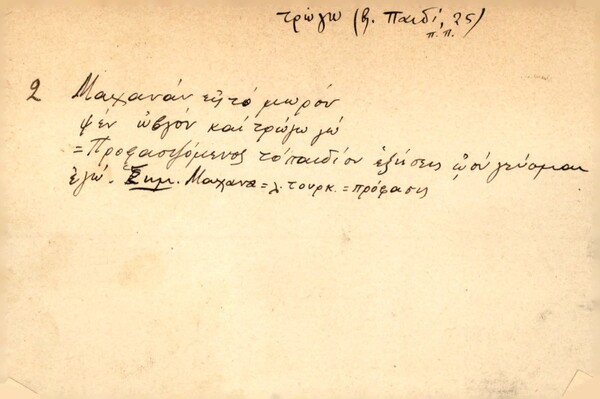 τρώγω (β. παιδί, 25)
π.π.
2 Μαχανάν εὗτό μωρόν
ψέν ὠβγόν καί τρώγω γώ
= Προφασιζόμενος τό παιδίον ἑψήσεις ᾠόν γεύομαι
ἐγώ. Σημ. Μαχανα = λ. τουρκ. = πρόφασις